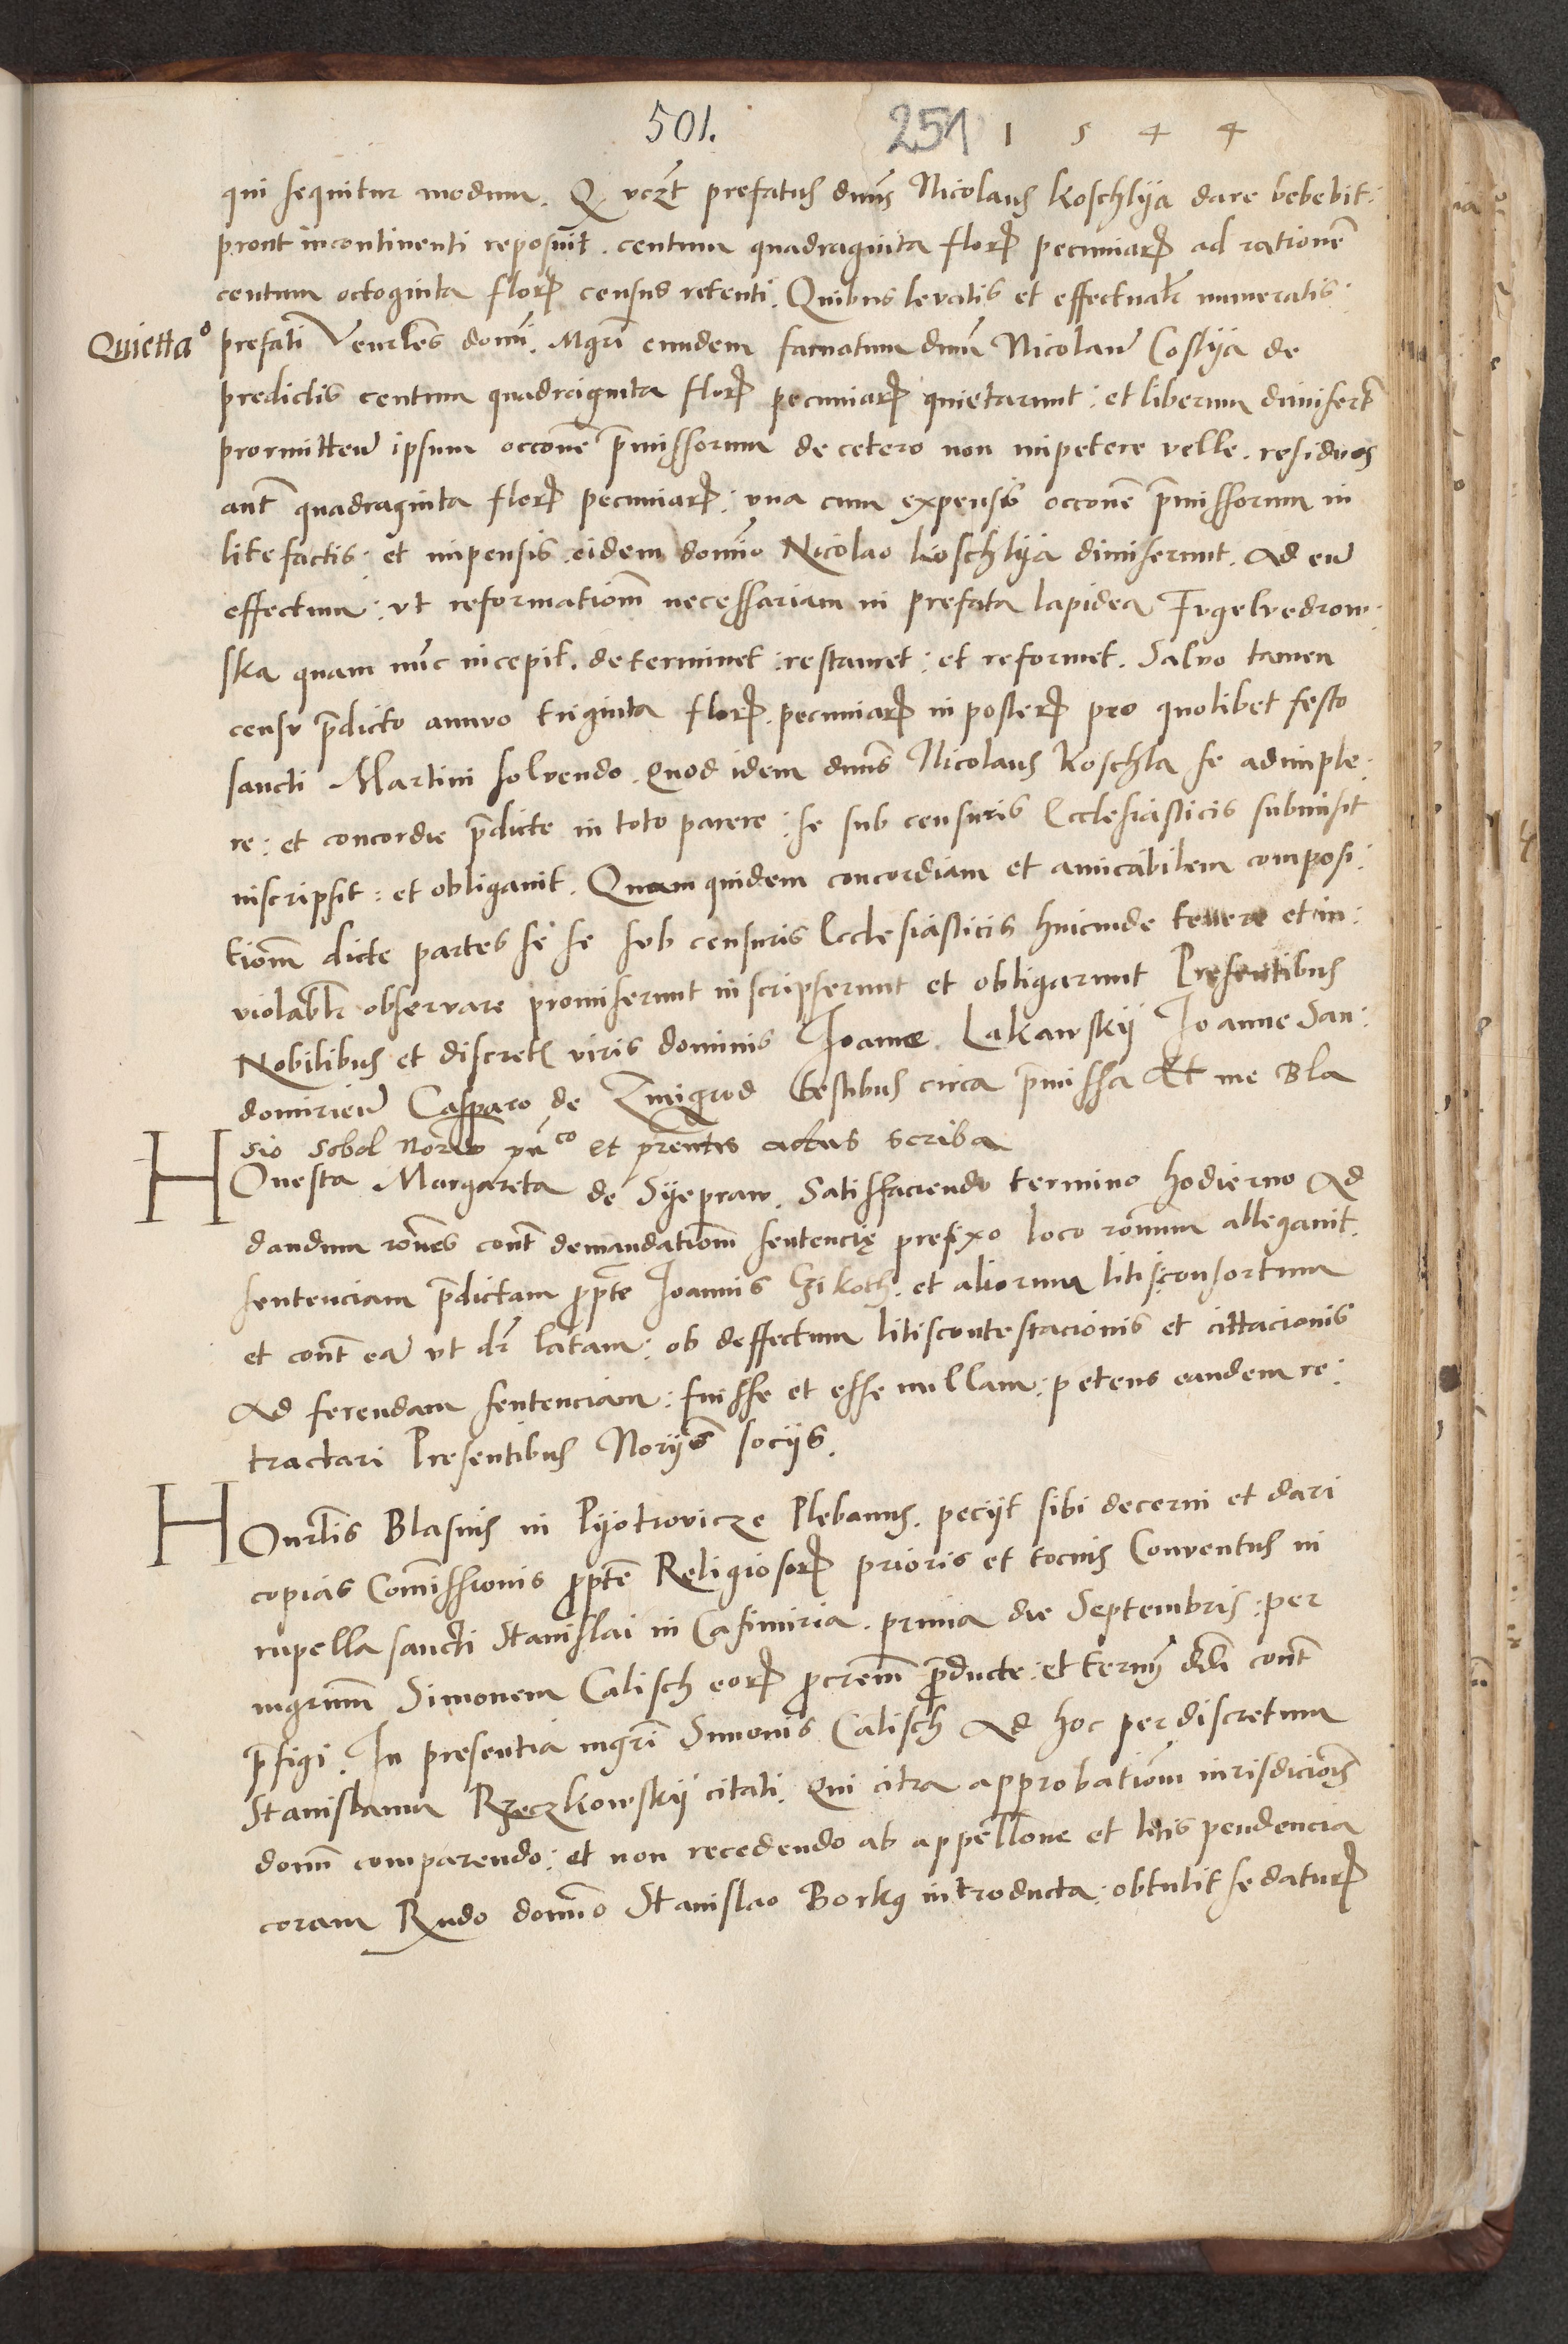 501. 251 1 5 4 4
qui sequitur modum. Q vczt prefatus dnus Nicolaus Koschlya dare bebebit:
prout incontinenti reposuit. centum quadraginta flor pecuniar ad rationē
centum octoginta flor census retenti. Quibus levatis et effectualr numeratis:
Quietta⁰
prefati Venrles domi. Mgri eundem famatum dnum Nicolaū Coslya de
predictis centum quadraginta flor pecuniar quietarunt: et liberum dimisert
promittēn ipsum occone pmissorum de cetero non impetere velle. residuos
aut quadraginta flor pecuniar: vna cum expensis occone pmissorum in
lite factis: et impensis eidem domino Nicolao Koschlya dimiserunt. Ad eū
effectum: vt reformationē necessariam in prefata lapidea Fvgelvedrow:
ska quam nūc incepit. determinet: restauret: et reformet. Salvo tamen
censu pdicto annuo triginta flor pecuniar in poster pro quolibet festo
sancti Martini solvendo. Quod idem dnus Nicolaus Koschla se adimple:
re: et concordie pdicte in toto parere: se sub censuris Ecclesiasticis submisit
inscripsit: et obligavit. Quam quidem concordiam et amicabilem composi:
tionē dicte partes se se sub censuris Ecclesiasticis hincinde tenere et in:
violablr observare promiserunt inscripserunt et obligarunt Presentibus
Nobilibus et discret viris dominis Joanne Lakawsky Joanne San:
domirieū Casparo de Zmigrod testibus circa pmissa Et me Bla
sio Sobol norio pūco et prentis actus scriba
HOnesta Margareta de Syepraw. Satisfaciendo termino hodierno Ad
dandum rones cont demandationē sentencię prefixo loco ronum allegavit.
sentenciam pdictam pspte Joannis Czikoth. et aliorum litis consortum
et cont eā vt dr latam: ob deffectum litiscontestacionis et cittacionis
Ad ferendam sentenciam: fuisse et esse nullam: petens eandem re:
tractari Presentibus Noryis socijs.
HOnrlis Blasius in Pyotrovicze Plebanus. pecyt sibi decerni et dari
copias Commissionis pptē Religiosor prioris et tocius Conventus in
rupella sancti Stanislai in Casimiria. prima die Septembris: per
mgrum Simonem Calisch eor procrem pducte: et termī ddi cont
pfigi. In presentia mgri Simonis Calisch Ad hoc per discretum
Stanislaum Rzeczkowsky citati. Qui citra approbationē iurisdicionis
domi comparendo: et non recedendo ab appellone et litis pendencia
coram Rndo domino Stanislao Borkg introducta: obtulit se datur